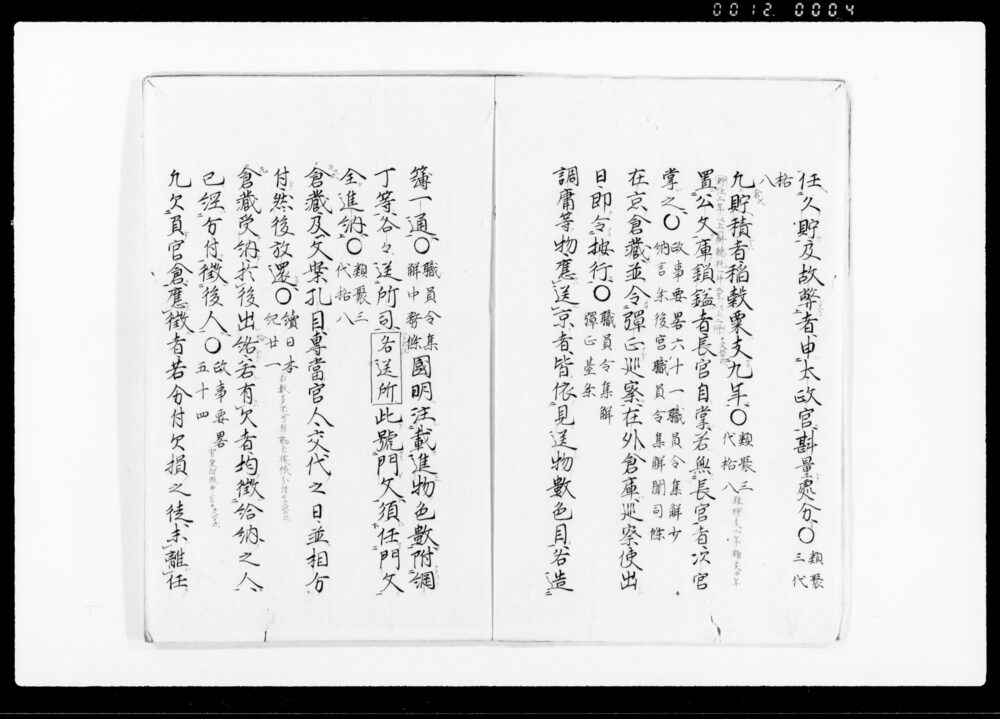 0012 0004
任久貯及故弊者申太政官斟量処分〇類聚三代
格八
九貯積者稲穀粟支九年〇類聚三代格八
置公文庫鎖鎰者長官自掌若無長官者次官
掌之〇政事要畧六十一職員令集解少納言条後宮職員令集解闈司條
在京倉蔵並令彈正巡察在外倉庫巡察使出
日即令按行〇職員令集解彈正臺条
調庸等物應送京者皆依見送物數色目各造
簿一通〇職員令集解中務條國明注載進物色數附綱
丁等各々送所司各送所此號門文須任門文
全進納〇類聚三代格八
倉藏及文案孔目專當官人交代之日並相分
付然後放還〇續日本紀廿一
倉藏受納於後出給若有欠者均徴給納之人
已經分付徴後人〇政事要畧五十四
九欠負官倉應徴者若分付欠損之徒未離任